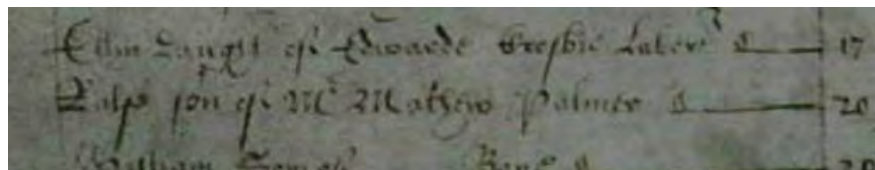 Ellin Daught of Edwarde Crosbie Laborr C 17
Ralph son of Mr Mathew Palmer C 20
William